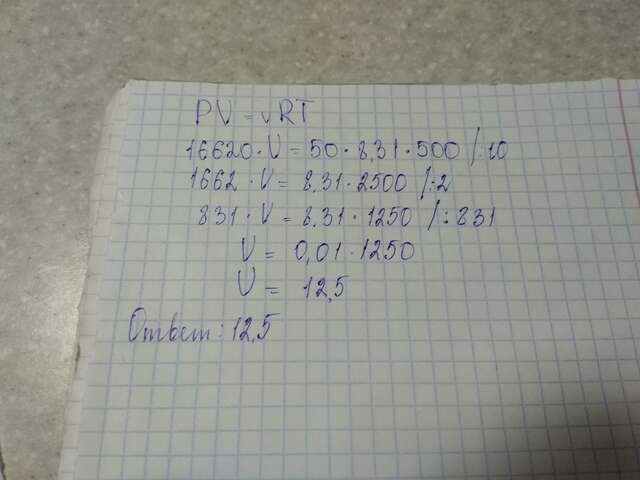 PV = νRT
16620 · V = 50 · 8,31 · 500 /:10
1662 · V = 8,31 · 2500 /:2
831 · V = 8,31 · 1250 /:831
V = 0,01 · 1250
V = 12,5
Ответ: 12,5